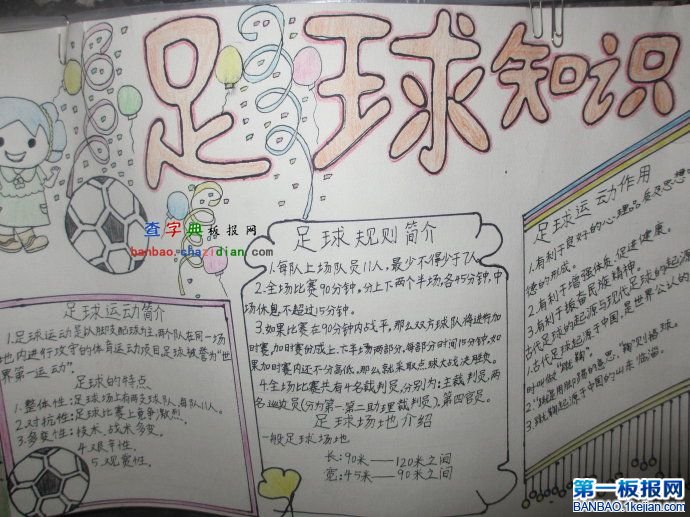 足球知识
查字典板报网
banbao.chazidian.com
足球运动简介
1.足球运动是以脚支配球为主,两个队在同一场
地内进行攻守的体育运动项目,足球被誉为“世
界第一运动”.
足球的特点
1.整体性:足球场上有两支球队,每队11人。
2.对抗性:足球比赛上竞争激烈.
3.多变性:技术、战术多变。
4.艰辛性.
5.观赏性.
足球规则简介
1.每队上场队员11人,最少不得少于7人。
2.全场比赛90分钟,分上下两个半场,各45分钟,中
场休息,不超过15分钟。
3.如果比赛在90分钟内战平,那么双方球队将进行加
时赛,加时赛分成上、下半场两部分,每部分时间15分钟,如
果加时赛内还不分高低,那么就采取点球大战决胜负。
4.全场比赛共有4名裁判员,分别为:主裁判员,两
名巡边员(分为第一第二助理裁判员),第四官员。
足球场地介绍
一般足球场地
长:90米——120米之间
宽:45米——90米之间
足球运动作用
1.有利于良好的心理品质及思想
德的形成。
2.有利于增强体质,促进健康。
3.有利于振奋民族精神。
古代足球的起源与现代足球的起源
1.古代足球起源于中国,是世界公认的
时叫做“蹴鞠”
2.“蹴”是用脚踢的意思,“鞠”则指球。
3.蹴鞠起源于中国的山东临淄。
第一板报网
BANBAO.1kejian.com